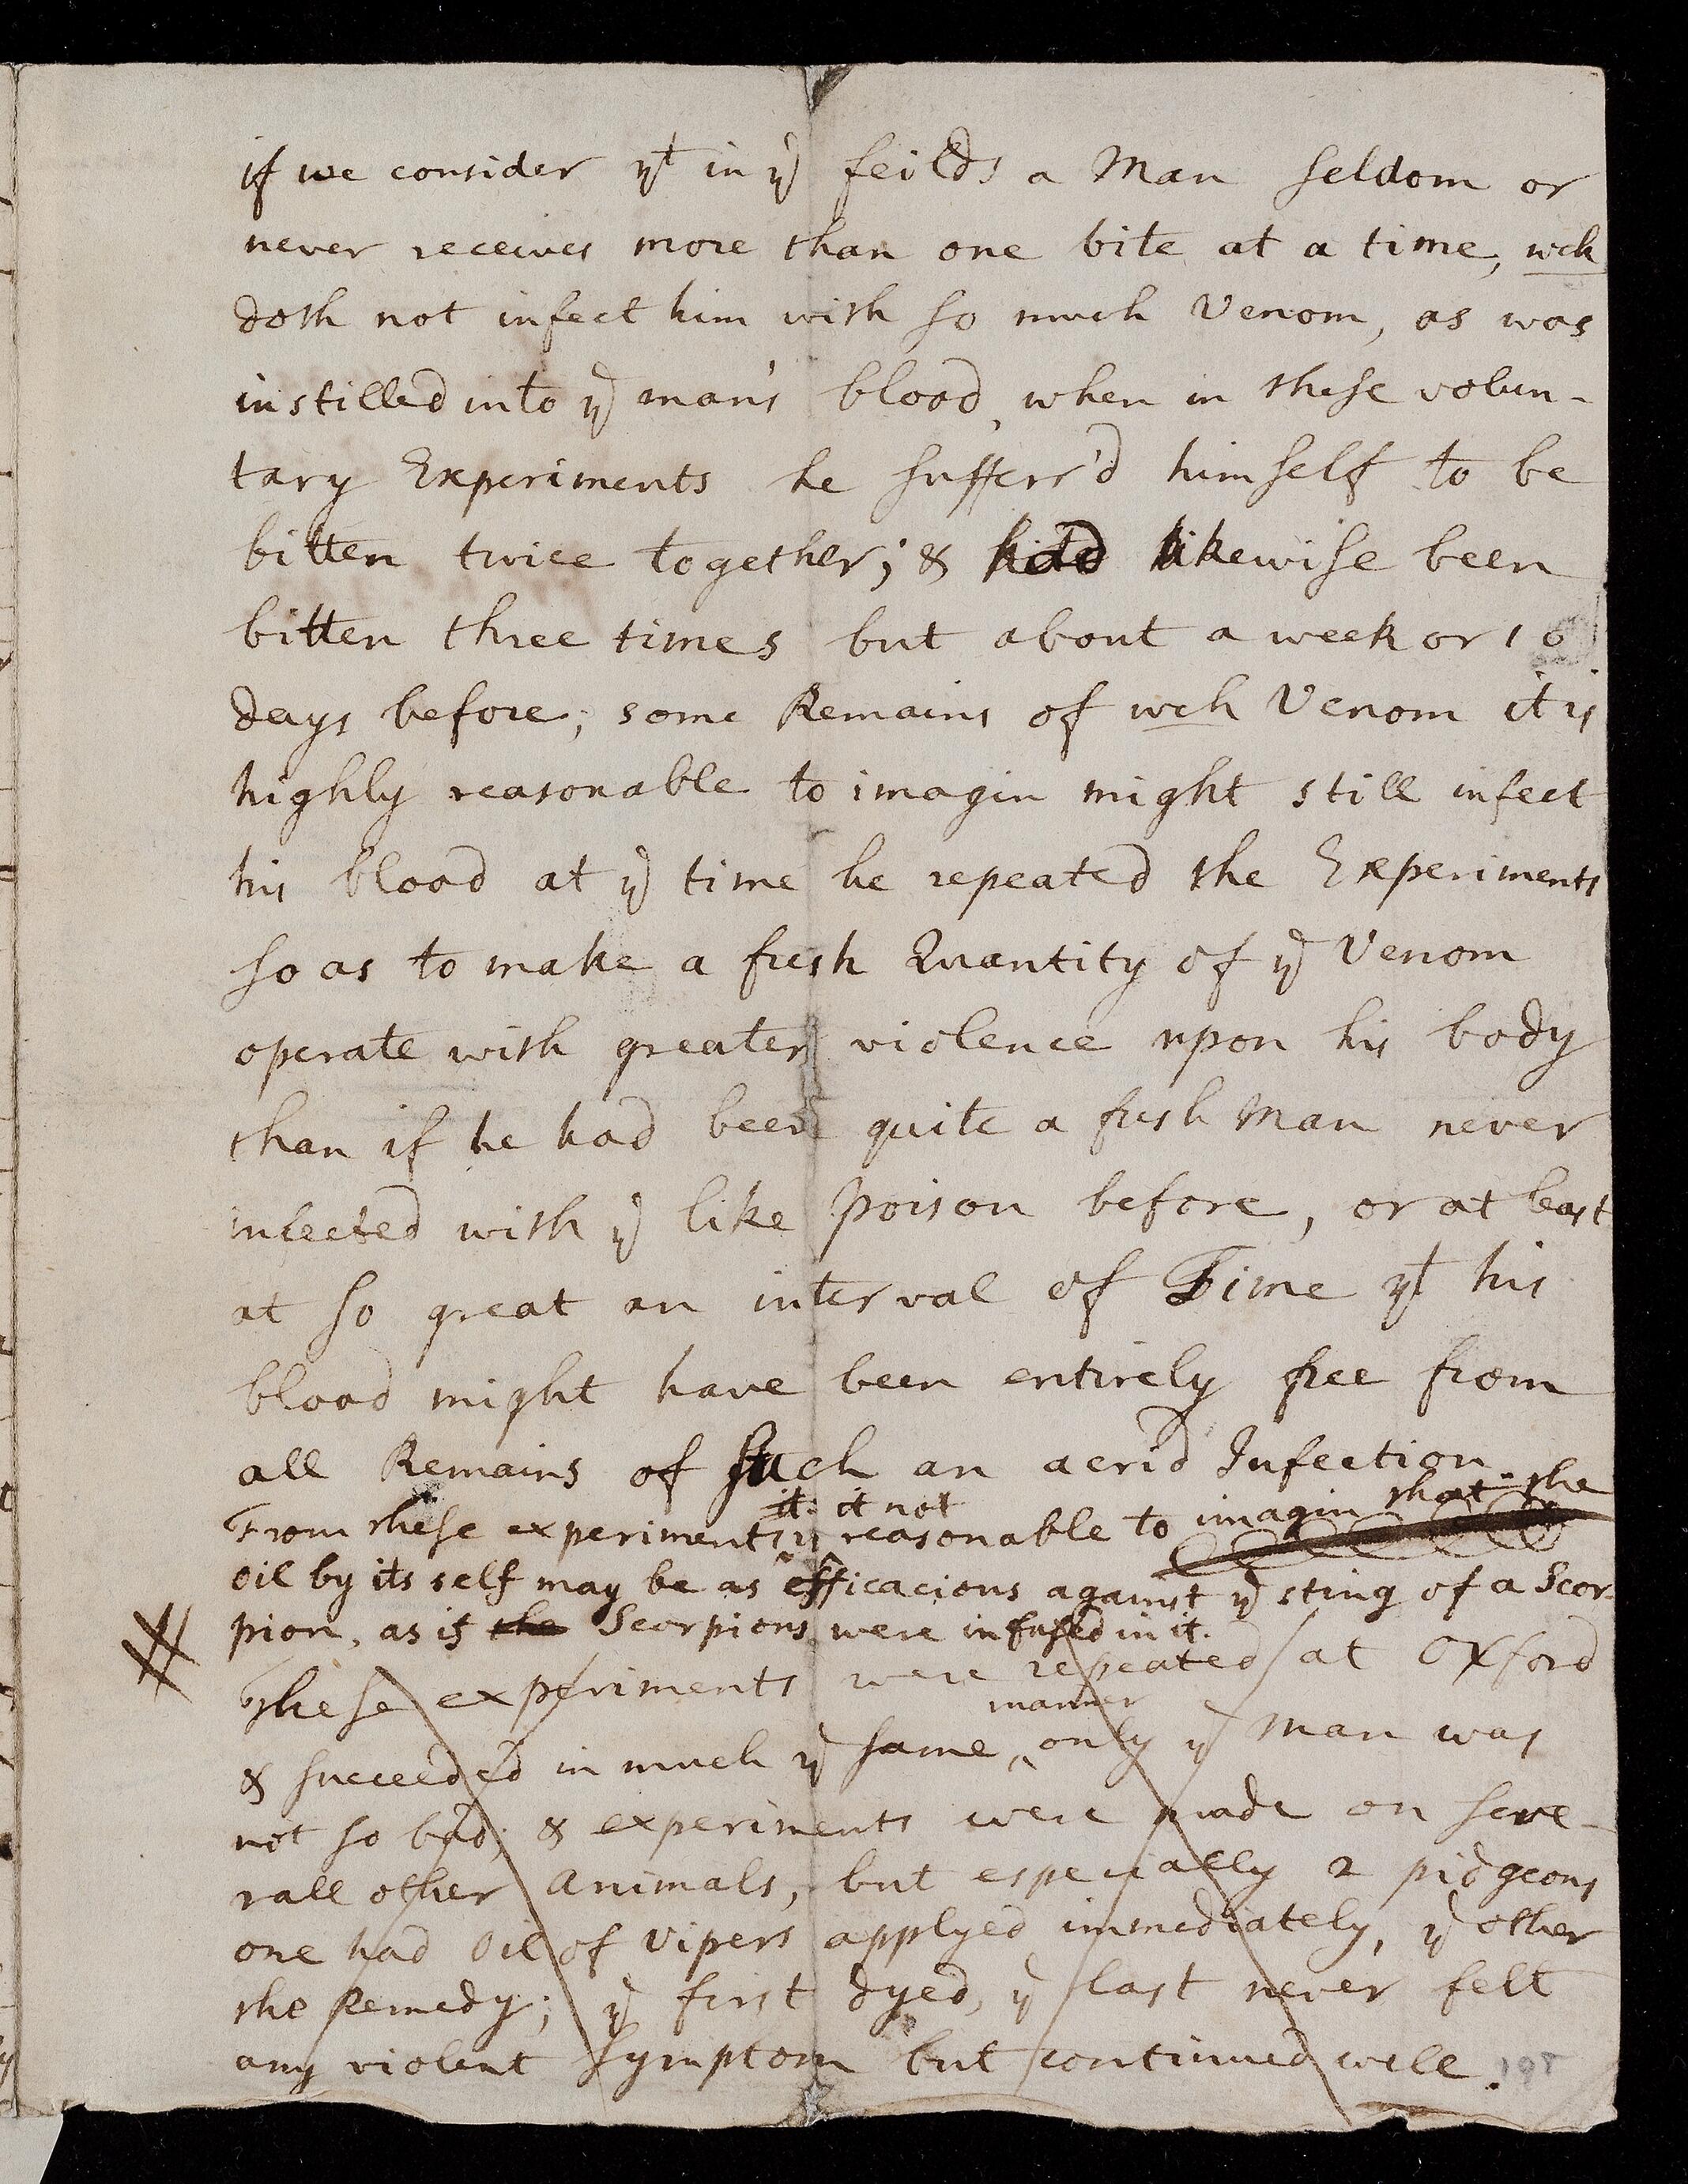 if we consider yt in ye feilds a Man seldom or
never receives more than one bite at a time, wch
doth not infect him with so much Venom, as was
instilled into ye man's blood, when in these volun-
tary Experiments he sufferr'd himself to be
bitten twice together; & had likewise been
bitten three times but about a week or 10
days before; some Remains of wch Venom it is
highly reasonable to imagin might still infect
his blood at ye time he repeated the Experiments
so as to make a fresh Quantity of ye Venom
operate with greater violence upon his body
than if he had been quite a fresh Man never
infected with ye like poison before, or at least
at so great an interval of Time yt his
blood might have been entirely free from
all Remains of such an acrid Infection
it it not that the
From these experiments is reasonable to imagin
oil by its self may be as efficacious against ye sting of a Scor-
pion, as if the Scorpions were infused in it.
These experiments were repeated at Oxford
manner
& succeeded in much ye same, only ye Man was
not so bad; & experiments were made on seve-
rall other Animals, but especially 2 pidgeons
one had Oil of Vipers applyed immediately, ye other
the Remedy; ye first dyed, ye last never felt
any violent symptom but continued well.